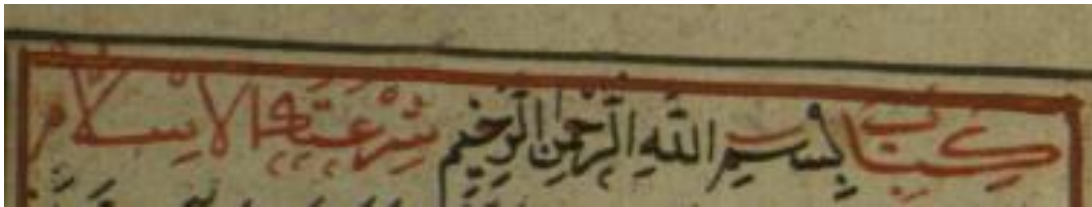 كِتَاب بِسْمِ اللَّهِ الرَّحْمٰنِ الرَّحِيمِ شِرْعَةُ الْاِسْلَام